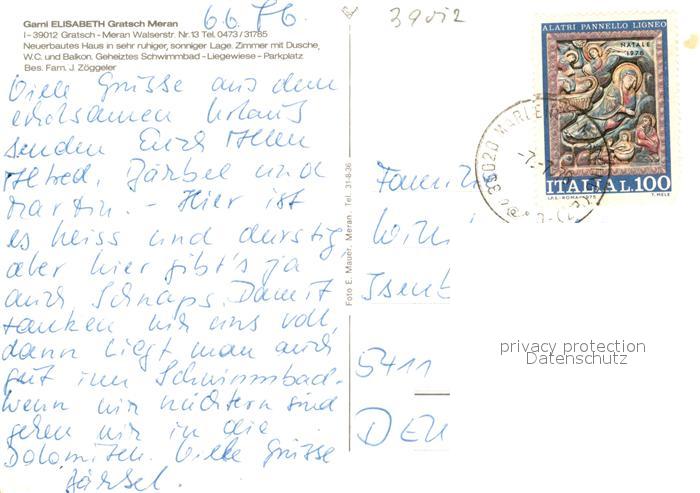 6.6.76.
39vi2
Garni ELISABETH Gratsch Meran
I-39012 Gratsch - Meran Walserstr. Nr. 13 Tel. 0473/31785
Neuerbautes Haus in sehr ruhiger, sonniger Lage. Zimmer mit Dusche,
W.C. und Balkon. Geheiztes Schwimmbad - Liegewiese - Parkplatz
Bes. Fam. J. Zöggeler
Viele Grüsse aus dem
Urlaub
senden Euch Allen
Alfred, Bärbel und
Martin. - Hier ist
es heiss und durstig,
aber hier gibt's ja
auch Schnaps. Damit
tanken wir uns voll,
dann liegt man auch
gut im Schwimmbad.
Wenn wir nüchtern sind
gehen wir in die
Dolomiten. Viele Grüsse
Bärbel.
Foto E. Mauer, Meran, Tel. 31-8-36
Famili
Wilh
Isenb
5411
DEU
ALATRI PANNELLO LIGNEO
NATALE
1975
ITALIA L.100
I.P.S.-ROMA-1975 T. MELE
39020 MARLE
privacy protection
Datenschutz